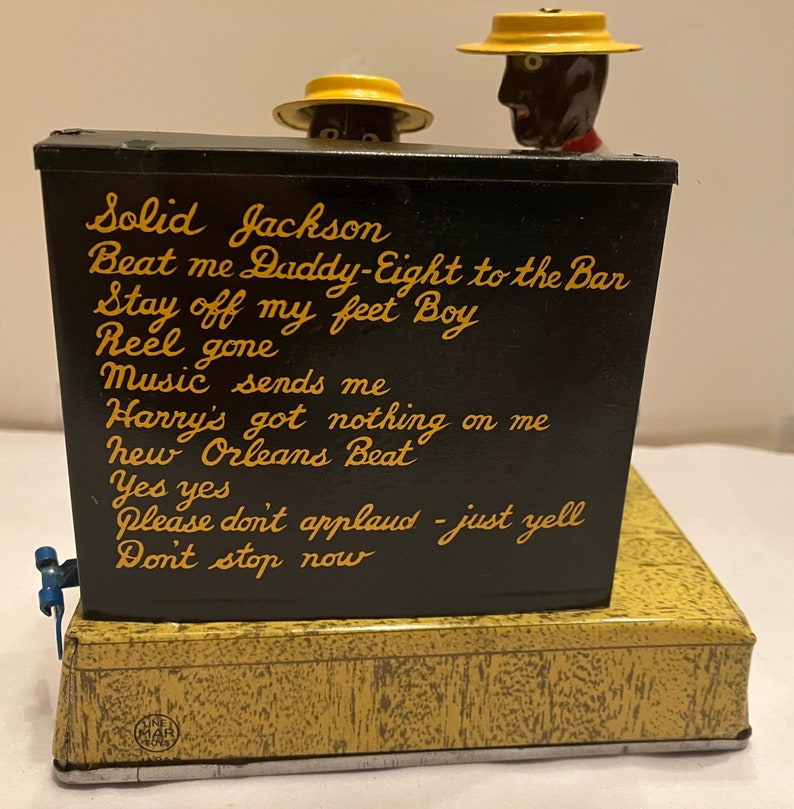 Solid Jackson
Beat me Daddy-Eight to the Bar
Stay off my feet Boy
Reel gone
Music sends me
Harry's got nothing on me
new Orleans Beat
Yes yes
please don't applaud - just yell
Don't stop now
LINE
MAR
TOYS
JAPAN